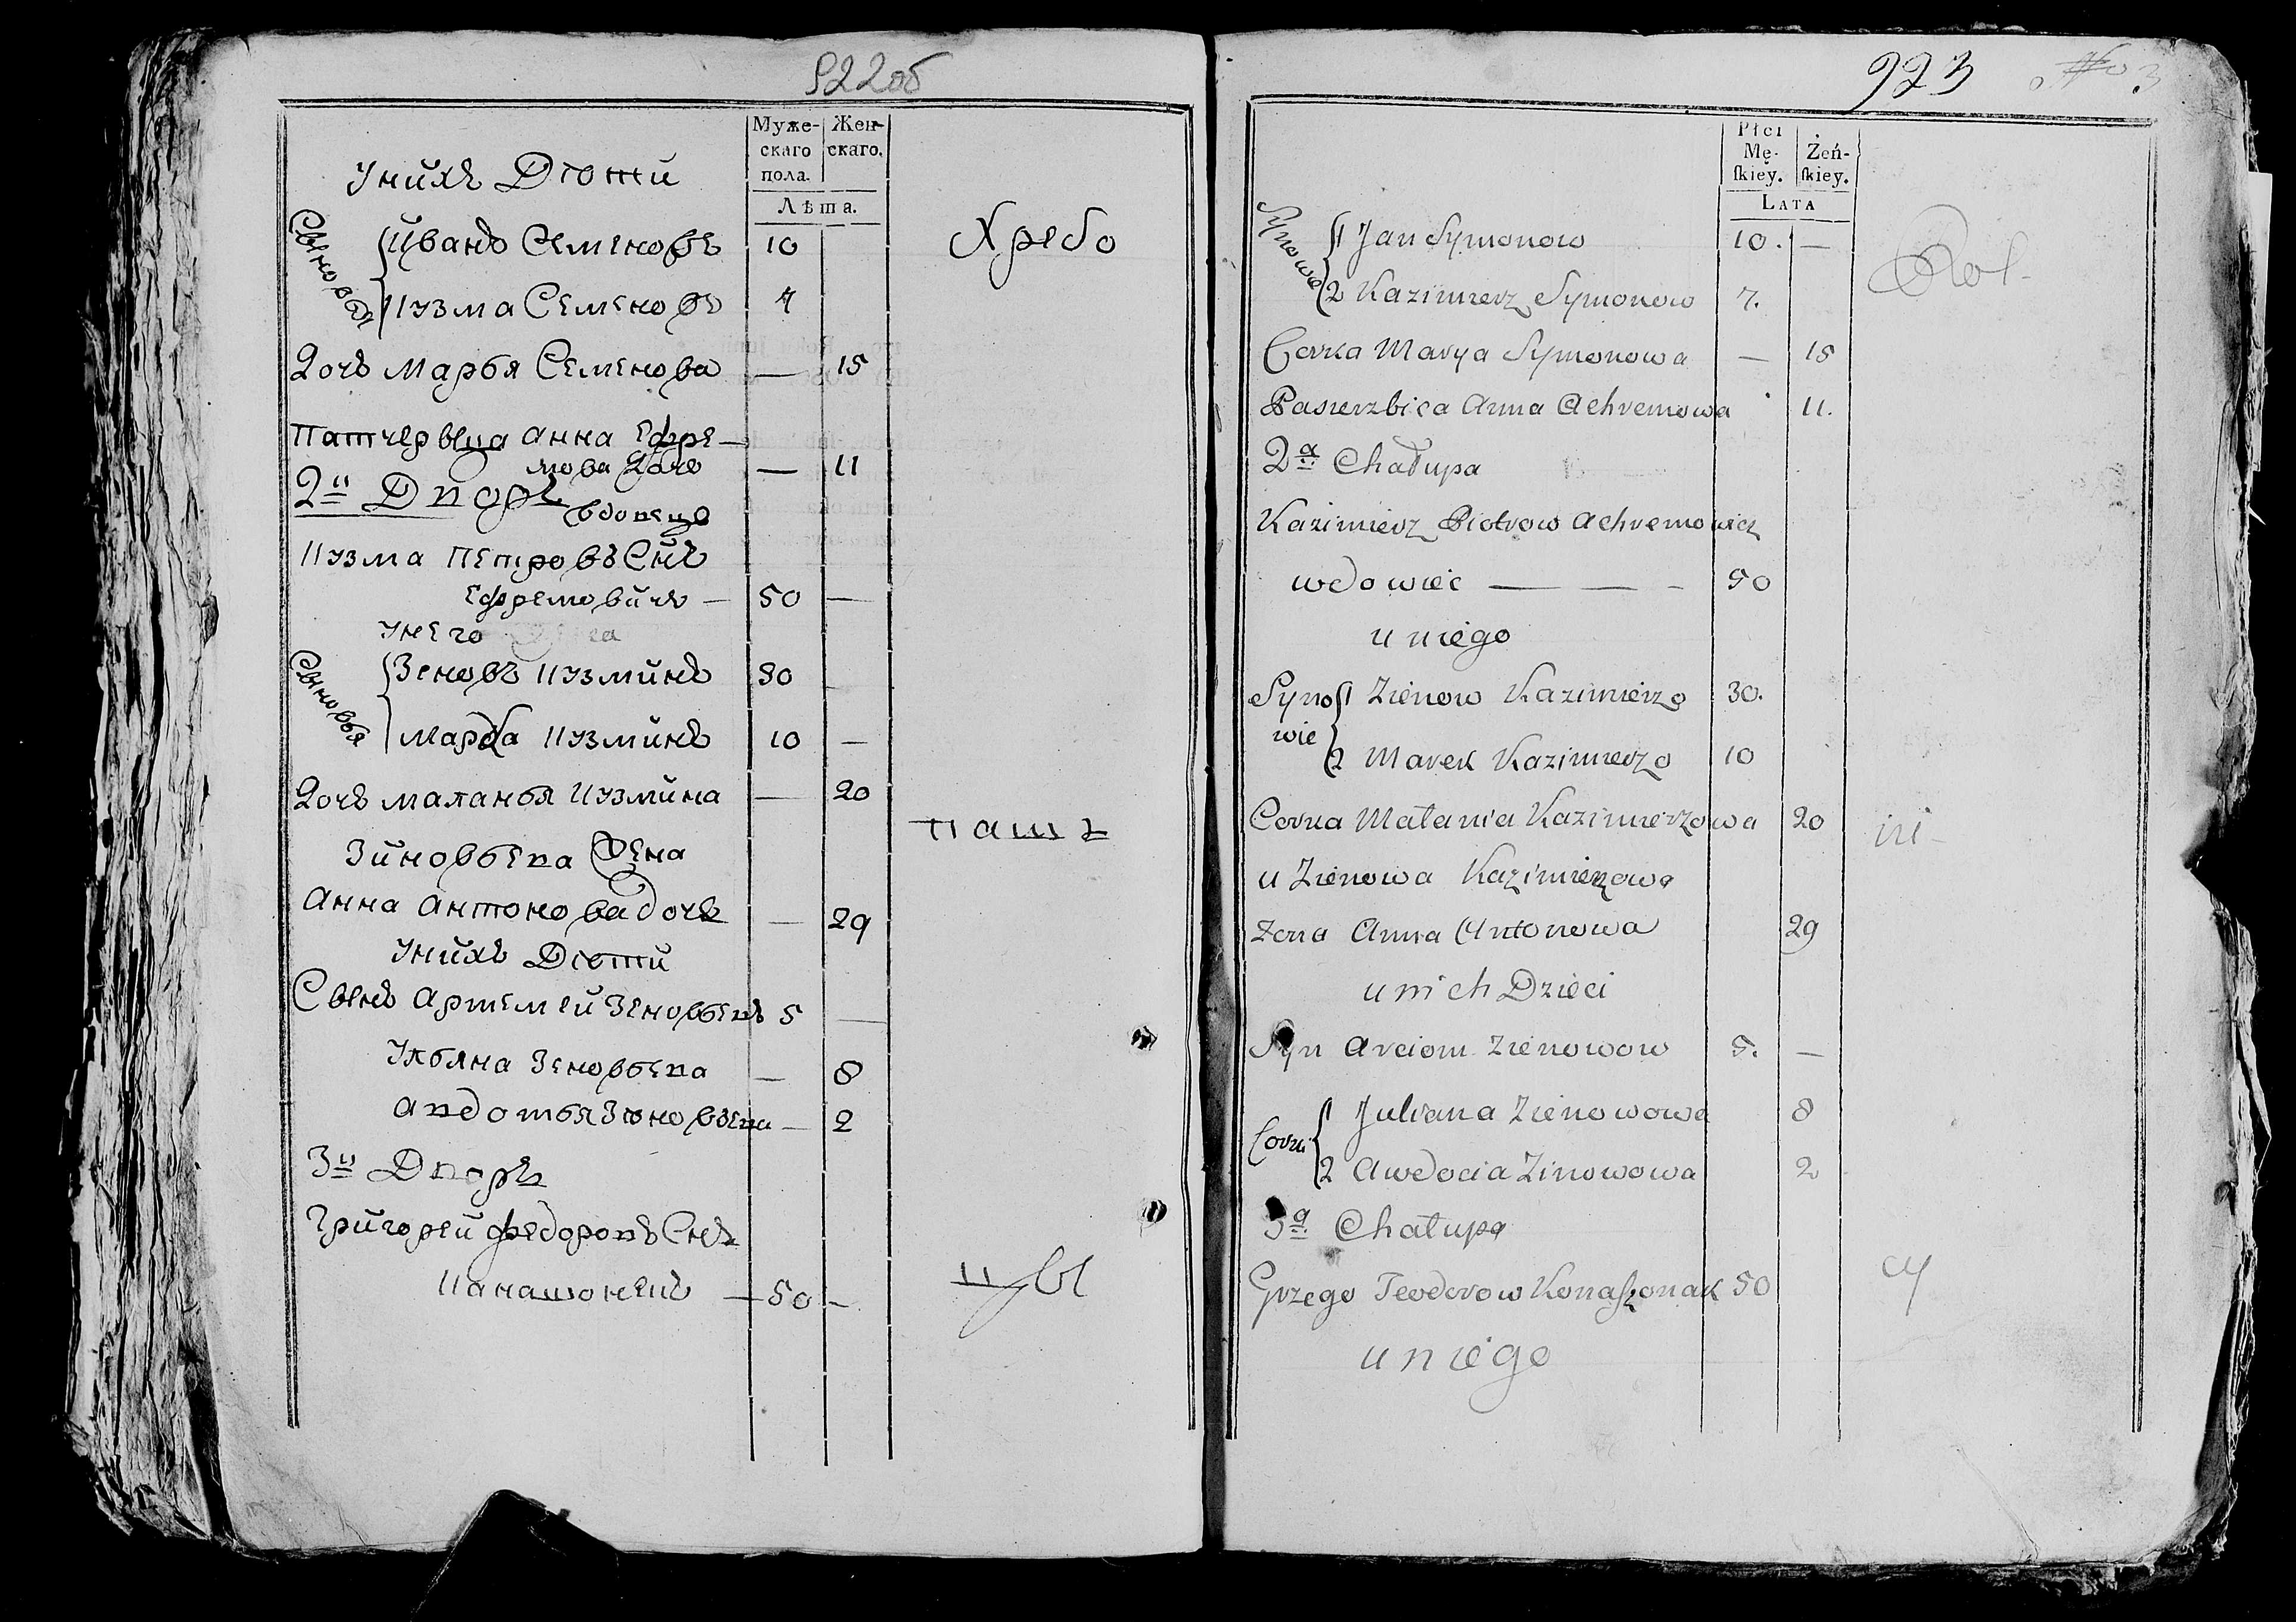 922об
Муже-
скаго
пола.
Жен-
скаго.
Лѣта.
Унихъ Дѣти
Сыновья
Иванъ Семеновъ 10
Кузма Семеновъ 7
Хребо
Дочь Марья Семенова — 15
Патчервица Анна Ефре-
мова Дочь — 11
2й Дворъ
вдовецъ
Кузма Петровъ Снъ
Ефремовичъ — 50 —
Унего
Сыновья
Зеновъ Кузминъ 30
Марка Кузминъ 10 —
Дочь Маланья Кузмина — 20
Зиновьева Жена
пашъ
Анна Антонова дочь — 29
Унихъ Дѣти
Сынъ Артемей Зеновьевъ 5 —
Ульяна Зеновьева — 8
Авдотья Зѣновьева — 2
3й Дворъ
Григорей Федоровъ Снъ
Канашонекъ — 50 —
цы
923
No 3
Płci
Mę-
ſkiey.
Żeń-
ſkiey.
LATA
Synowie
1 Jan Symonow 10. —
2 Kazimierz Symonow 7.
Corka Marya Symonowa — 15
Pasierzbica Anna Achremowa 11.
2a Chałupa
Kazimierz Piotrow Achremowicz
wdowiec — — — 50
u niego
Syno
wie
1 Zienow Kazimierzo 30.
2 Marek Kazimierzo 10
Corka Małania Kazimierzowa 20
u Zienowa Kazimierzowa
Zona Anna Antonowa 29
u nich Dzieci
Syn Arciom Zienowow 5. —
Corki
1 Juliana Zienowowa 8
2 Awdocia Zinowowa 2
3a Chałupa
Grzego Teodorow Konaszonak 50
u niego